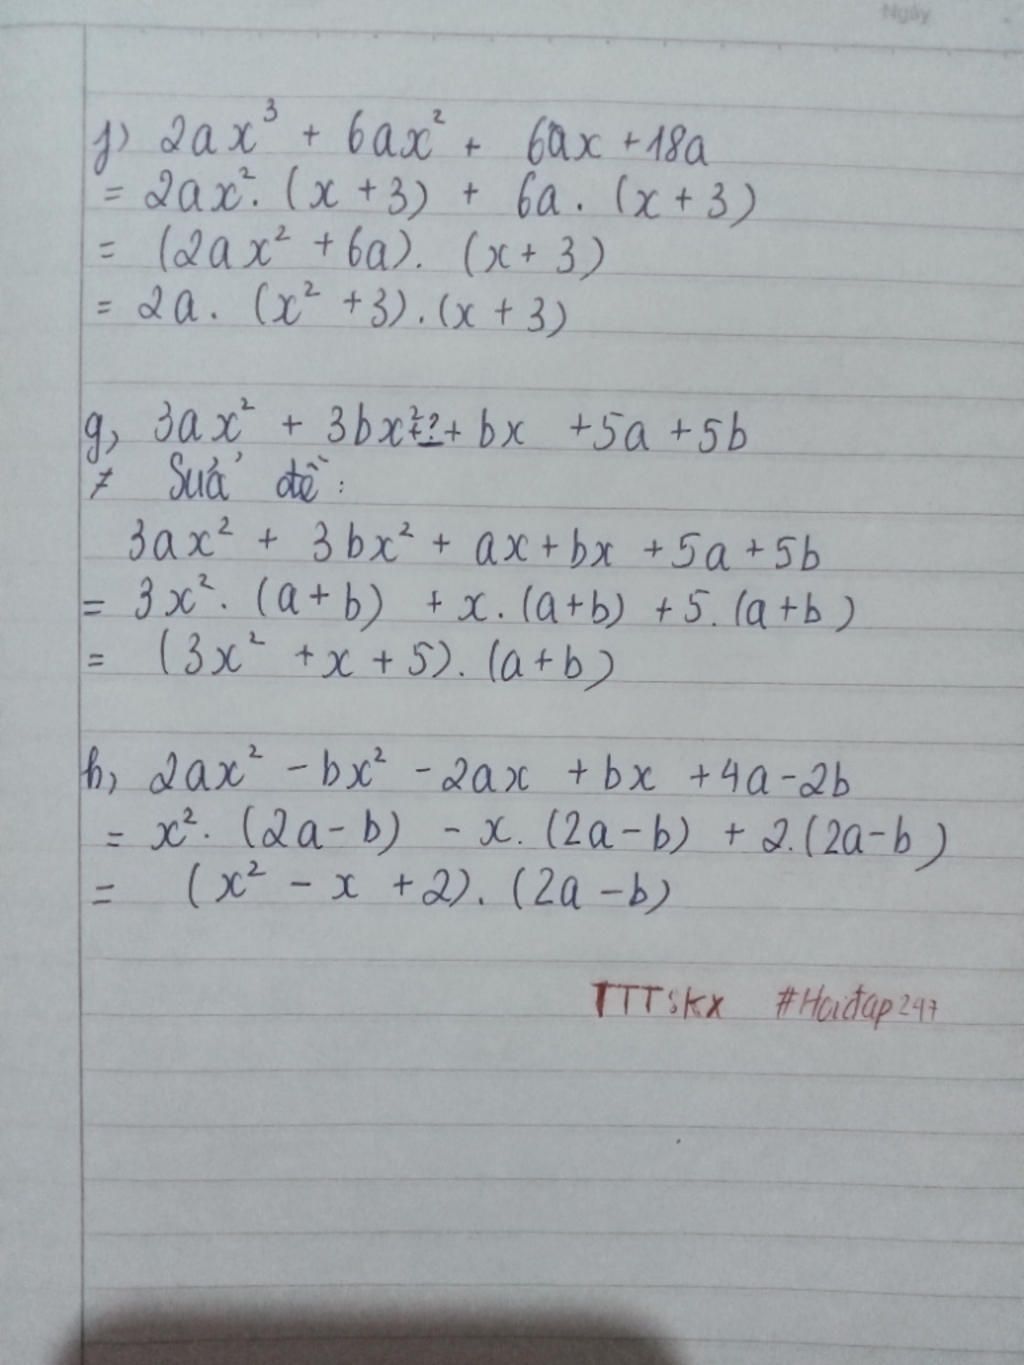 Ngày
f) 2ax³ + 6ax² + 6ax + 18a
= 2ax². (x + 3) + 6a. (x + 3)
= (2ax² + 6a). (x + 3)
= 2a. (x² + 3).(x + 3)
g, 3ax² + 3bx² + ? + bx + 5a + 5b
Sửa đề:
3ax² + 3bx² + ax + bx + 5a + 5b
= 3x². (a + b) + x. (a+b) + 5. (a+b)
= (3x² + x + 5). (a + b)
h, 2ax² - bx² - 2ax + bx + 4a - 2b
= x². (2a - b) - x. (2a - b) + 2.(2a - b)
= (x² - x + 2). (2a - b)
TTTSKX #Hoiđap247